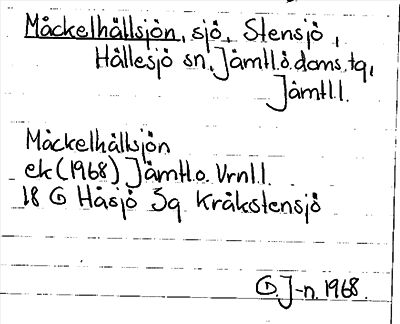 Måckelhållsjön, sjö, Stensjö,
Hällesjö sn, Jämtl.ö.doms.tq,
Jämtl.l.
Måckelhållsjön
ek (1968) Jämtl.o. Vrnl.l.
18 G Håsjö 3g Kråkstensjö
G. J-n. 1968.